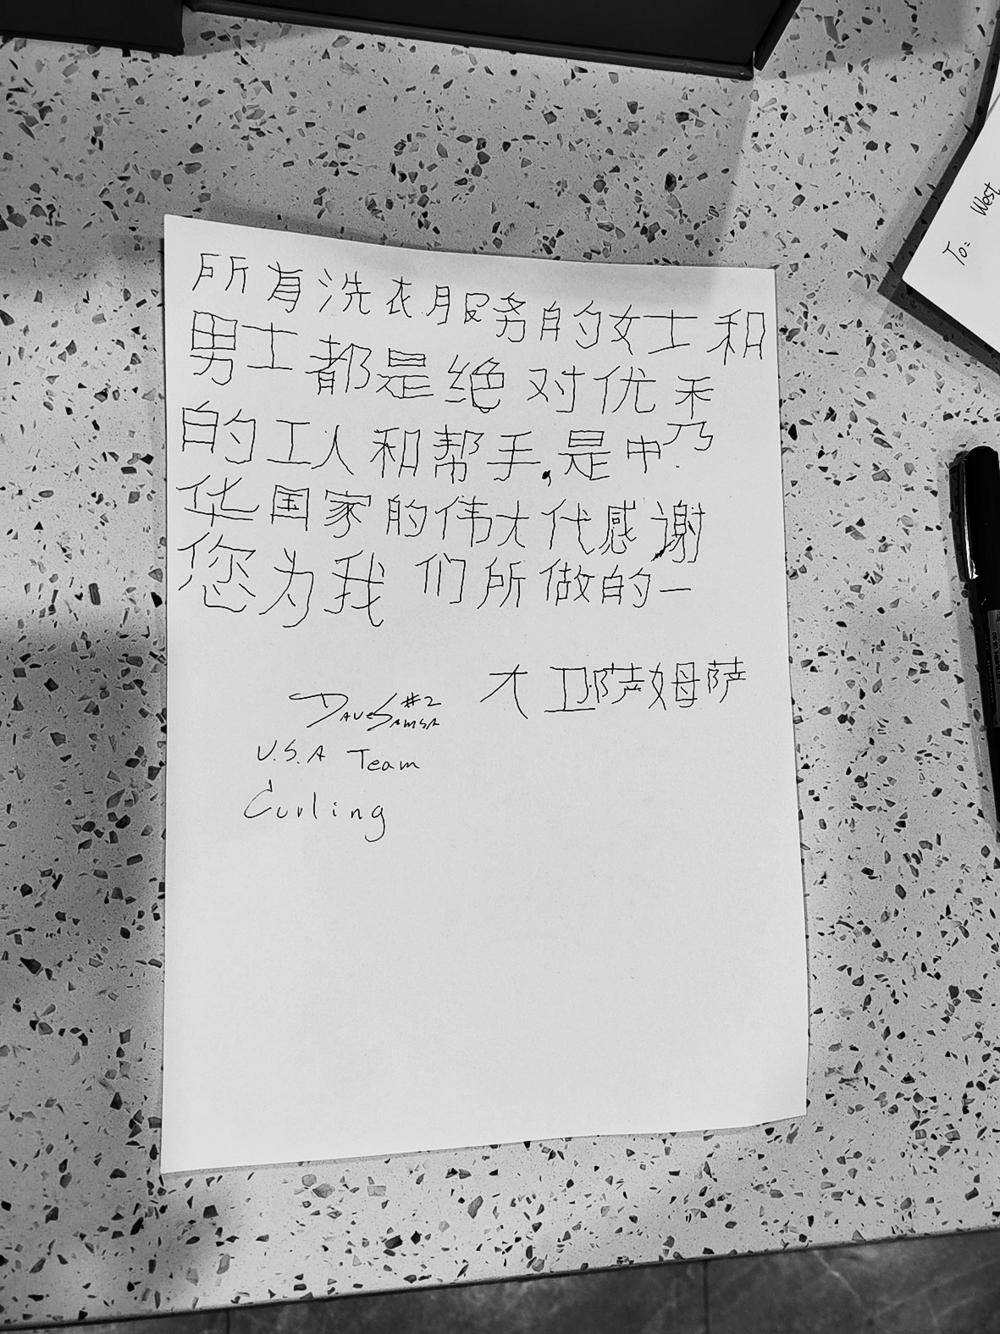 所有洗衣服务的女士和
男士都是绝对优禾
的工人和帮手,是中乃
华国家的伟大代感谢
您为我们所做的一
大卫萨姆萨
Dave Samsa #2
U.S.A Team
Curling
To: West